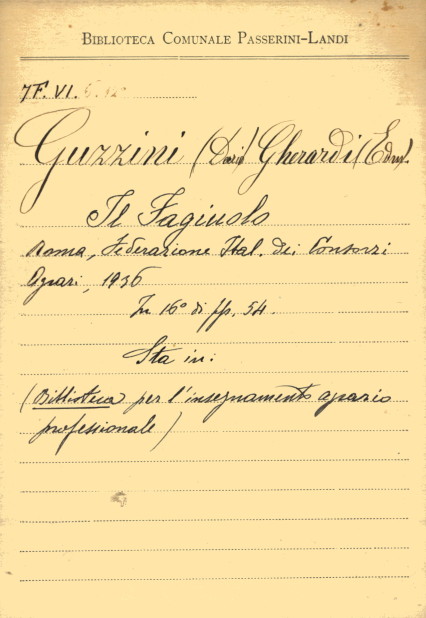 BIBLIOTECA COMUNALE PASSERINI-LANDI
7F. VI.
Guzzini (Dario) Gherardi (Edm).
Il Fagiuolo
Roma, Federazione Ital. dei Consorzi
Agrari, 1936
In 16° di pp. 54.
Sta in:
(Biblioteca per l'insegnamento agrario
professionale)